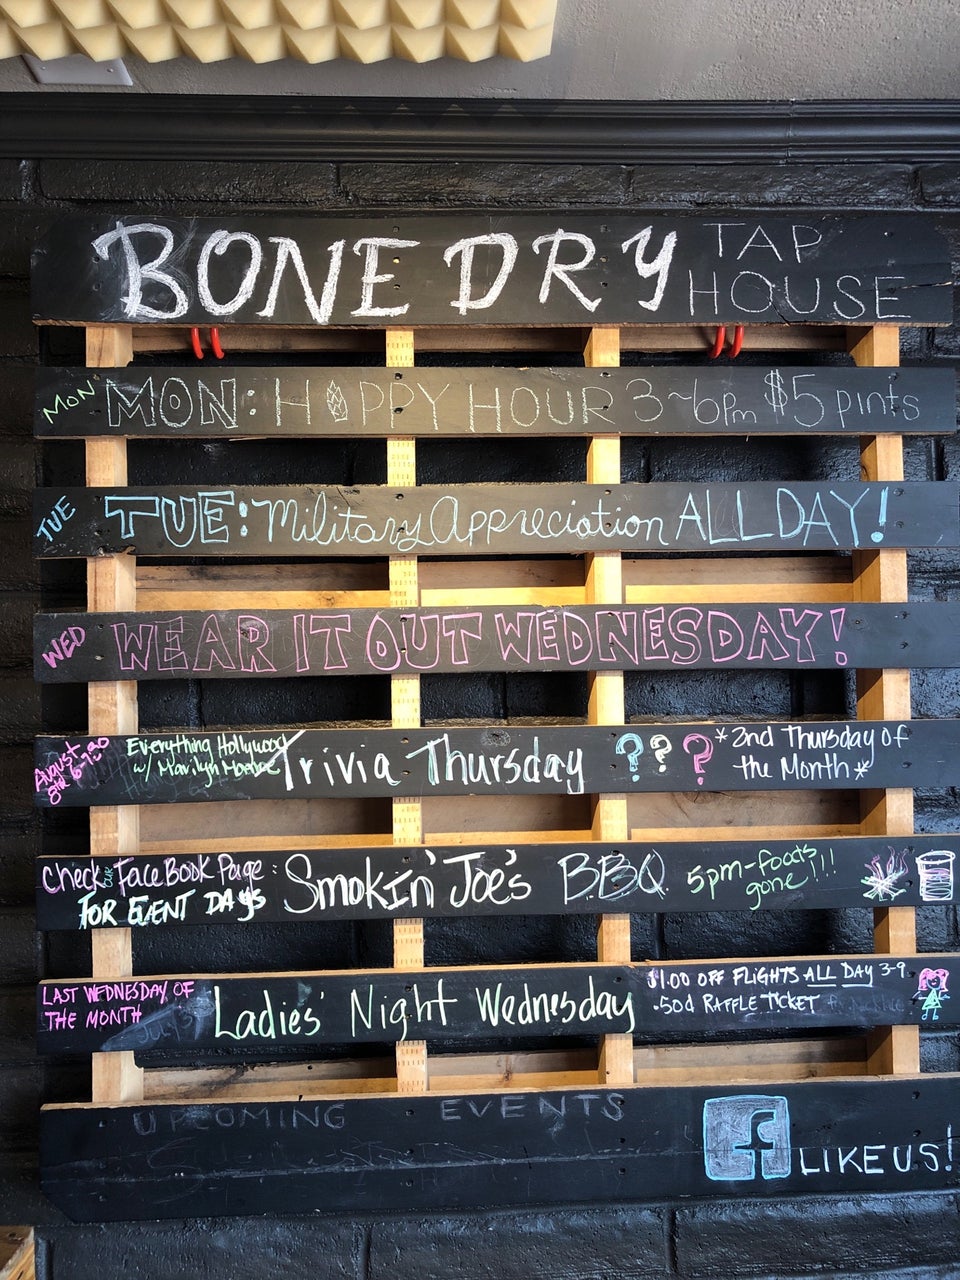 BONE DRY TAP HOUSE
MON: MON: HOPPY HOUR 3~6pm $5 pints
TUE TUE: Military Appreciation ALL DAY!
WED WEAR IT OUT WEDNESDAY!
August 8th 6-7:30
Everything Hollywood
w/ Marilyn Monroe
Trivia Thursday ? ? ?
*2nd Thursday of
the Month*
Check our FaceBook Page:
FOR EVENT DAYS
Smokin' Joe's BBQ
5pm-foods
gone!!!
LAST WEDNESDAY OF
THE MONTH
Ladies' Night Wednesday
$1.00 OFF FLIGHTS ALL DAY 3-9
•50¢ RAFFLE TICKET
UPCOMING EVENTS
f LIKE US!